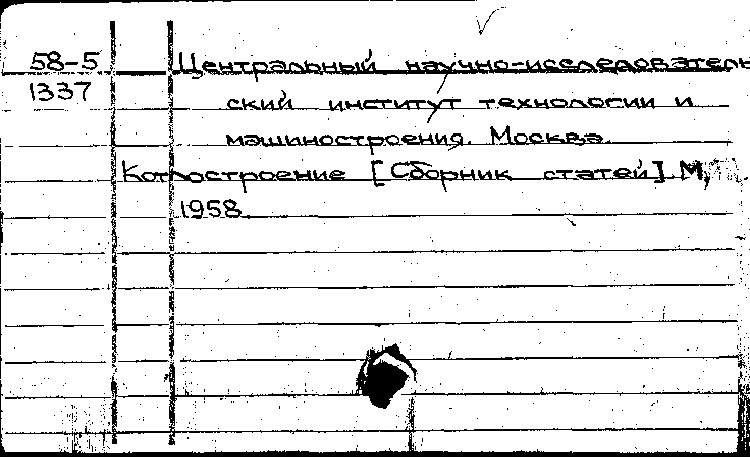 58-5 Центральный научно-исследователь
1337 ский институт технологии и
машиностроения. Москва.
Котлостроение [Сборник статей] М,
1958.